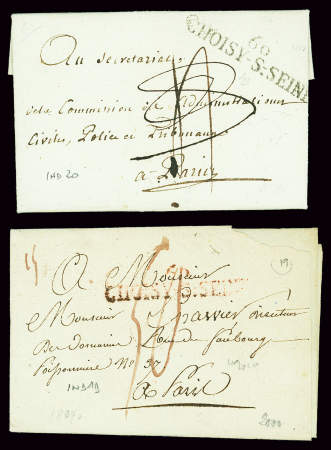 60
CHOISY-S-SEINE
Au Secretariat
de la Commission des Administrations
Civiles, Police et Tribunaux
a Paris
IND 20
19
A Monsieur
CHOISY-S-SEINE
Monsieur
Des domaines Rue du faubourg
Poissonniere No 37
IND 19
a Paris
2000